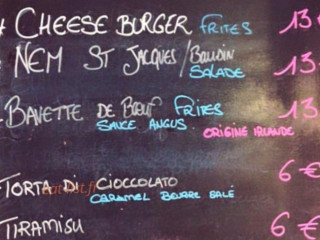 CHEESE BURGER FRITES 13
NEM ST JACQUES/BOUDIN 13
SALADE
BAVETTE DE BŒUF FRITES 13
SAUCE ANGUS. ORIGINE IRLANDE
TORTA DI CIOCCOLATO 6€
CARAMEL BEURRE SALÉ
TIRAMISU 6€